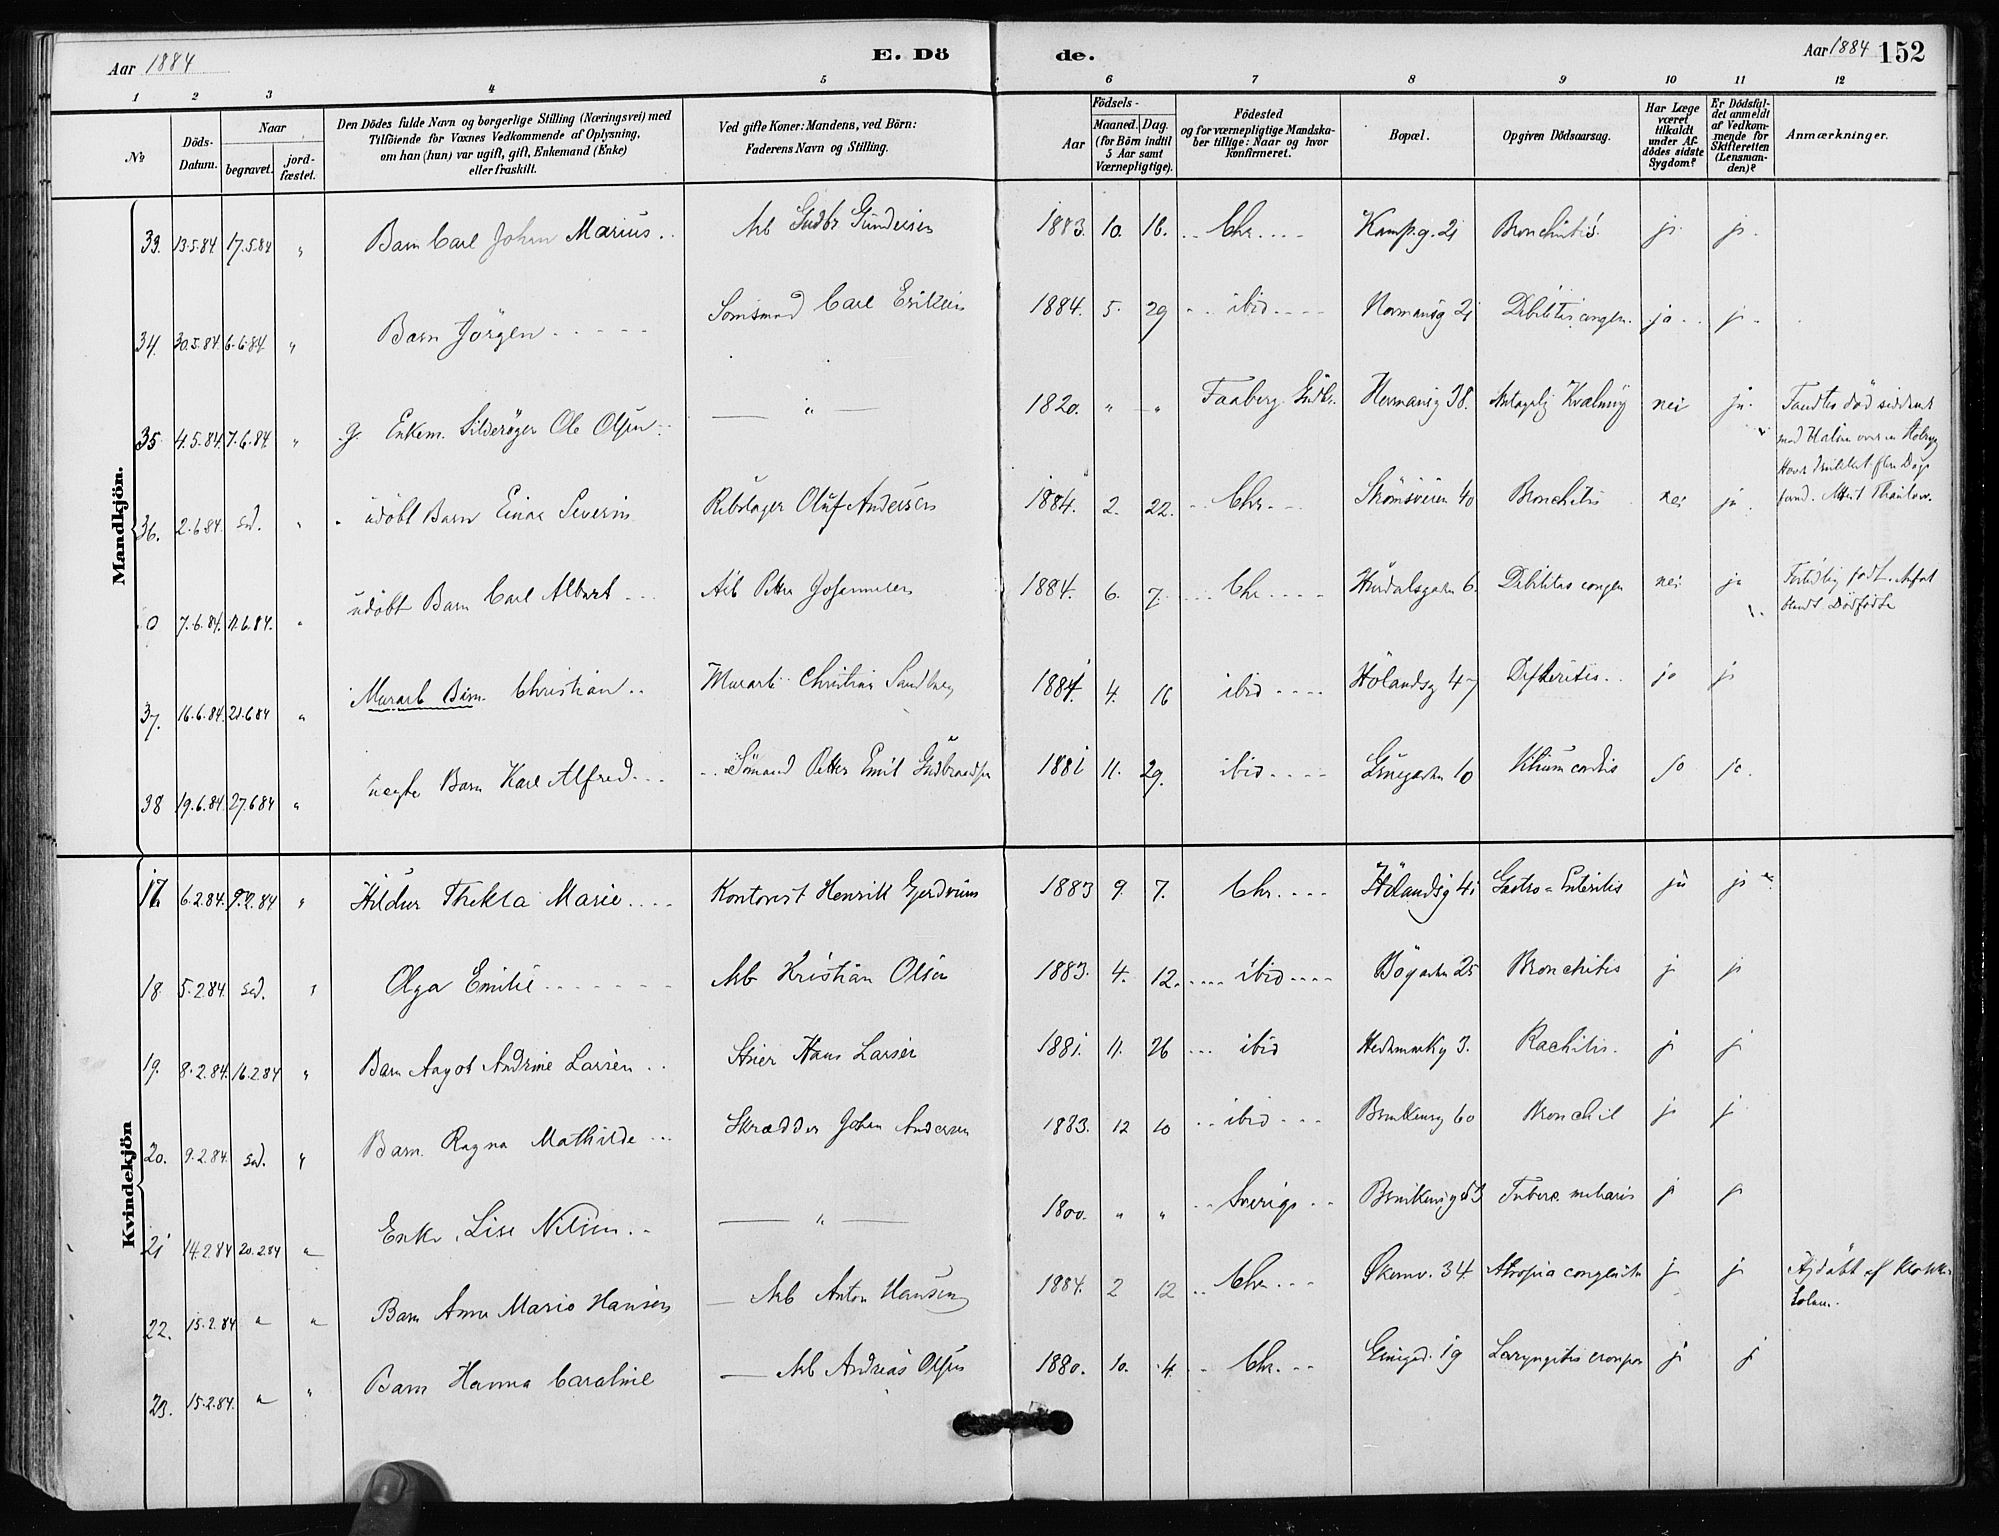 Aar 1884
E. Dö
de.
Aar 1884 152
1 2 3 4 5 6 7 8 9 10 11 12
No
Döds-Datum.
Naar
begravet.
jordfæstet.
Den Dödes fulde Navn og borgerlige Stilling (Næringsvei) med
Tilföiende for Voxnes Vedkommende af Oplysning,
om han (hun) var ugift, gift, Enkemand (Enke)
eller fraskilt.
Ved gifte Koner: Mandens, ved Börn:
Faderens Navn og Stilling.
Födsels-
Aar
Maaned. Dag.
(for Börn indtil
5 Aar samt
Værnepligtige).
Födested
og for værnepligtige Mandska-
ber tillige: Naar og hvor
konfirmeret.
Bopæl.
Opgiven Dödsaarsag.
Har Læge
været
tilkaldt
under Af-
dödes sidste
Sygdom?
Er Dödsfal-
det anmeldt
af Vedkom-
mende for
Skifteretten
(Lensman-
den)?
Anmærkninger.
Mandkjön.
33. 13.5.84 17.5.84 " Barn Carl Johan Marius.. Arb Gudbr Gundersen 1883. 10. 16. .. Chr.... Kampg. 21 Bronchitis. ja. ja.
34. 30.5.84. 6.6.84. " Barn Jörgen ..... Carl Eriksen 1884. 5. 29 .. ibid.... Normansg 21 Debilitis congen. ja.. ja.
35 4.5.84. 7.6.84. " g. Enkem. Ole Olsen.. — " — 1820. " " Faaberg Gudbr. Hermansg 38. Antagelig Kvælning nei ja. Fandtes död siddende
med Halsen over en
36. 2.6.84. sd. " udöbt Barn Einar Severin Rebslager Oluf Andersen 1884. 2. 22. .. Chr... Strömsveien 40 Bronchitis nei ja.
0 7.6.84. 11.6.84. " udöbt Barn Carl Albert ... Arb Petter Johannesen 1884. 6. 7. ... Chr.... Hurdalsgaden 6. Debilitas congen nei ja Fortidlig födt. Anfört
blandt Dödfödte
37. 16.6.84. 21.6.84 " Murarb Barn Christian.. Murarb. Christian Sandberg 1884. 4. 16 ibid.... Hölandsg 47 Difteritis.. ja ja
38 19.6.84. 27.6.84 " uægte Barn Karl Alfred... Sömand Petter Emil Gudbrandsen 1881 11. 29. ibid.... 10 Vitium cordis ja ja.
Kvindekjön
17. 6.2.84. 9.2.84 " Hildur Thekla Marie.... Kontorist Henrik Gjerdrum 1883 9. 7. Chr.... Hölandsg 41 Gastro=Enteritis ja ja
18. 5.2.84. sd. " Olga Emilie....... Arb Kristian Olsen 1883. 4. 12. .... ibid.... Bögaden 25 Bronchitis ja ja
19. 8.2.84. 16.2.84 " Barn Aagot Andrine Larsen .. Hans Larsen 1881. 11. 26 ... ibid Hedemarksg 3. Rachitis. ja ja
20. 9.2.84. sd. " Barn Ragna Mathilde ... Skrædder Johan Andersen 1883. 12 10 .. ibid... 60 Bronchit ja ja
21 14.2.84 20.2.84 " Enke Lise Nilsen.. — " — 1800. " " .. Sverige .. 53 Tuberc. miliaris ja ja
22. 15.2.84 " " Barn Anne Marie Hansen — Arb Anton Hansen 1884. 2 12 .. Chr... Økernv. 34. Atropia congenita ja ja Hjdöbt af Klokker
23. 15.2.84. " " Barn Hanna Caroline — Arb Andreas Olsen 1880. 10. 4. .. Chr... 19 Laryngitis crouposa ja ja